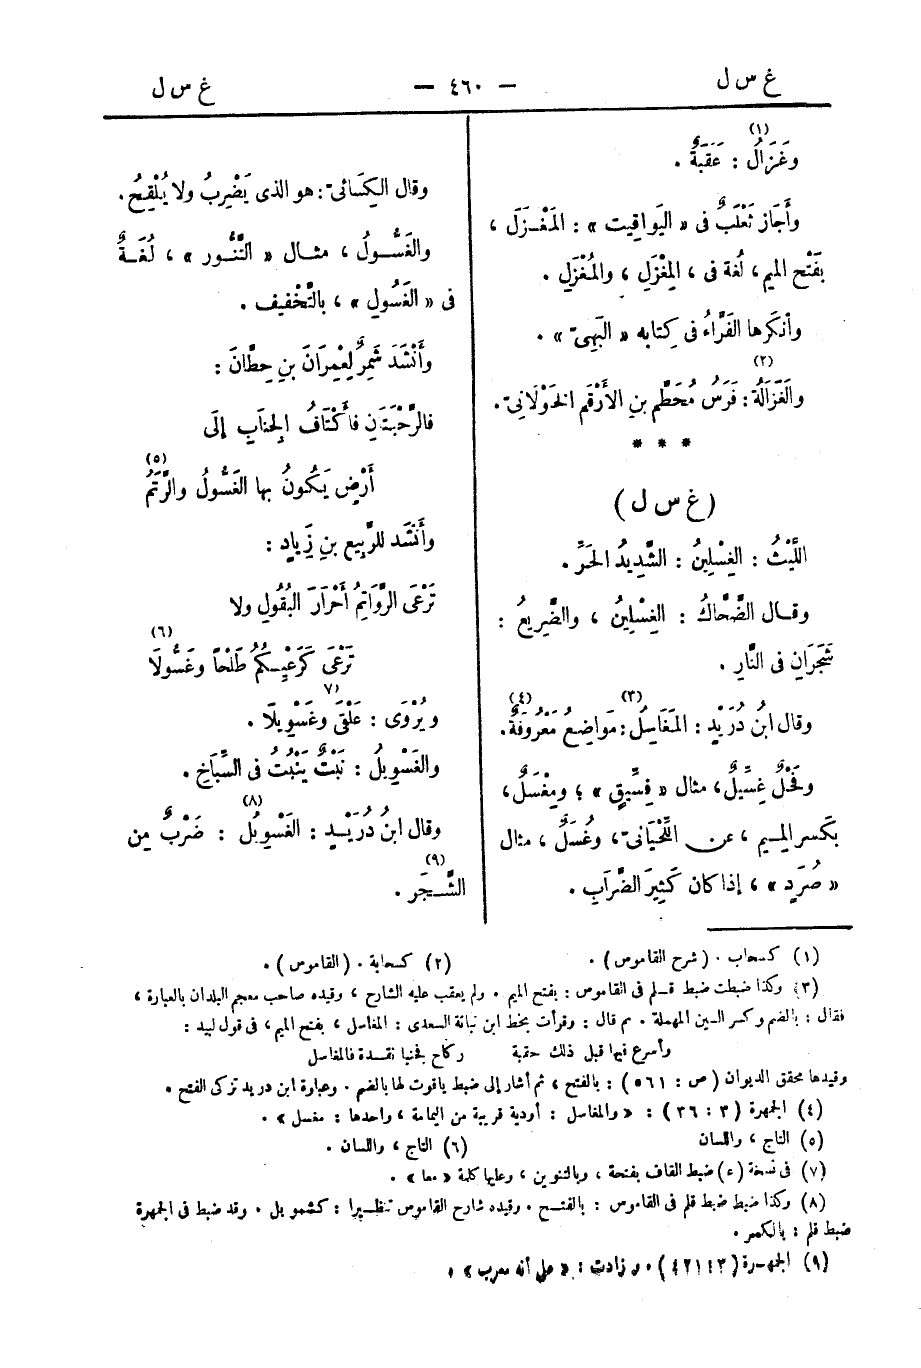 غ س ل — ٤٦٠ — غ س ل
وغَزَالُ(١) : عَقَبَةٌ .
وأَجَاز ثَعْلَبٌ فى « اليَواقِيت » : المَغْـزَل ،
بفَتْح الميم ، لُغة فى ، المِغْزَلِ ، والمُغْزَلِ .
وأنكَرها الفَرَّاءُ فى كِتابه « البَهِىّ » .
والغَزَالَةُ(٢) : فَرَسُ مُحَطَّمِ بنِ الأَرْقَمِ الخَوْلَانِىّ .
* * *
( غ س ل )
اللَّيْثُ : الغِسْلِينُ : الشَّدِيدُ الحَرِّ .
وقـال الضَّحَّاكُ : الغِسْلِينُ ، والضَّرِيعُ :
شَجَرَانِ فى النَّارِ .
وقال ابنُ دُرَيْدٍ : المَغَاسِلُ(٣) : مَواضِعُ مَعْرُوفَةٌ(٤) .
وفَحْلٌ غِسِّيلٌ ، مثال « فِسِّيقٍ » ؛ ومِغْسَلٌ ،
بكَسر المِـيم ، عن اللِّحْيَانىّ ، وغُسَلٌ ، مثال
« صُرَدٍ » ، إذا كان كَثِيرَ الضِّرَابِ .
وقال الكِسَائىّ : هو الذى يَضْرِبُ ولا يُلْقِحُ .
والغَسُّـولُ ، مثـال « التَّنُّور » ، لُغَـةٌ
فى « الغَسُول » ، بالتَّخْفيف .
وأَنْشَدَ شَمِرٌ لِعِمْرانَ بنِ حِطَّانَ :
فالرَّحْبَتَانِ فأَكْنَافُ الجنَابِ إلَى
أَرْضٍ يَكُونُ بها الغَسُّولُ والرَّتَمُ(٥)
وأَنشَد للرَّبِيع بنِ زِيادٍ :
تَرْعَى الرَّوَائِمُ أَحْرَارَ البُقُولِ ولا
تَرْعَى كَرَعْيِـكُمُ طَلْحًا وغَسُّولَا(٦)
ويُرْوَى : عَلْقَى(٧) وغَسْوِيلَا .
والغَسْوِيلُ : نَبْتٌ يَنْبُتُ فى السِّبَاخِ .
وقال ابنُ دُرَيْـدٍ : الغَسْوِيلُ(٨) : ضَرْبٌ من
الشَّـجَر(٩) .
(١) كسحاب . (شرح القاموس) . (٢) كسحابة . (القاموس) .
(٣) وكذا ضبطت ضبط قـلم فى القاموس : بفتح الميم . ولم يعقب عليه الشارح ، وقيده صاحب معجم البلدان بالعبارة ،
فقال : بالضم وكسر السين المهملة . ثم قال : وقرأت بخط ابن نباتة السعدى : المغاسل ، بفتح الميم ، فى قول لبيد :
وأسرع فيها قبل ذلك حقبة ركاح فجنبا نقـدة فالمغاسل
وقيدها محقق الديوان (ص : ٥٦١) : بالفتح ، ثم أشار إلى ضبط ياقوت لها بالضم . وعبارة ابن دريد تزكى الفتح .
(٤) الجمهرة (٣ : ٣٦) : « والمغاسل : أودية قريبة من اليمامة ، واحدها : مغسل » .
(٥) التاج ، واللسان (٦) التاج ، واللسان .
(٧) فى نسخة (ء) ضبط القاف بفتحة ، وبالتنوين ، وعليها كلمة « معا » .
(٨) وكذا ضبط ضبط قلم فى القاموس : بالفتـح . وقيده شارح القاموس تنظـيرا : كشمويل . وقد ضبط فى الجمهرة
ضبط قلم : بالكسر .
(٩) الجمهـرة (٣ : ٤٢١) . وزادت : « على أنه معرب » .